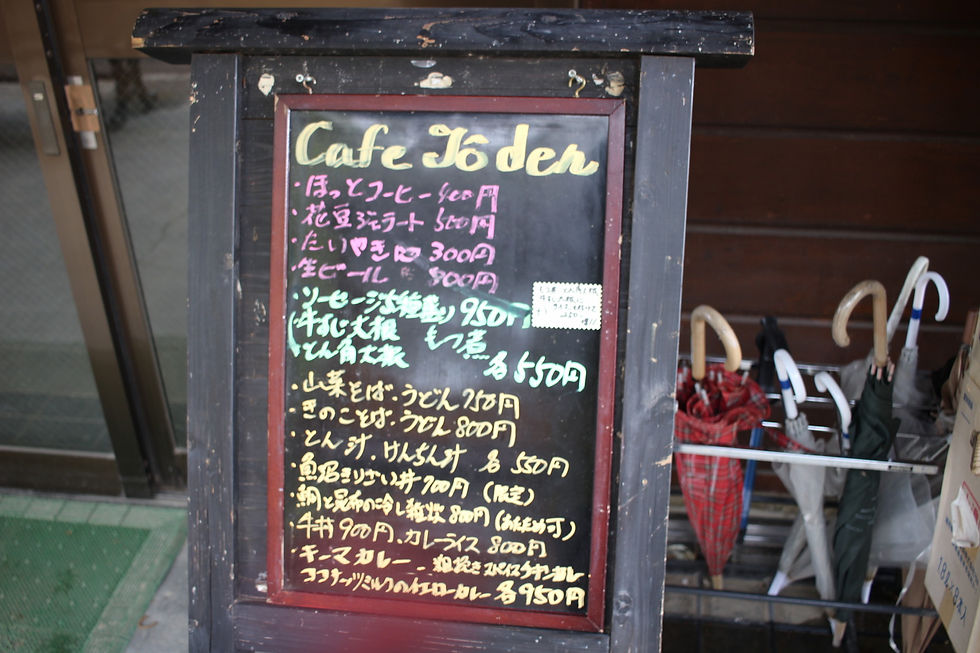 Cafe Tôden
・ほっとコーヒー 400円
・花豆ジェラート 500円
・たいやき 300円
・生ビール 800円
・ソーセージ5種盛り 950円
・牛すじ大根 もつ煮
・とん角大根 各550円
・山菜そば・うどん 750円
・きのこそば・うどん 800円
・とん汁・けんちん汁 各550円
・魚沼きりざい丼 700円 (限定)
・鯛と昆布の冷し雑炊 800円 (あたため可)
・牛丼 900円、カレーライス 800円
・キーマカレー 粗挽きスパイスチキンカレー
ココナッツミルクのイエローカレー 各950円